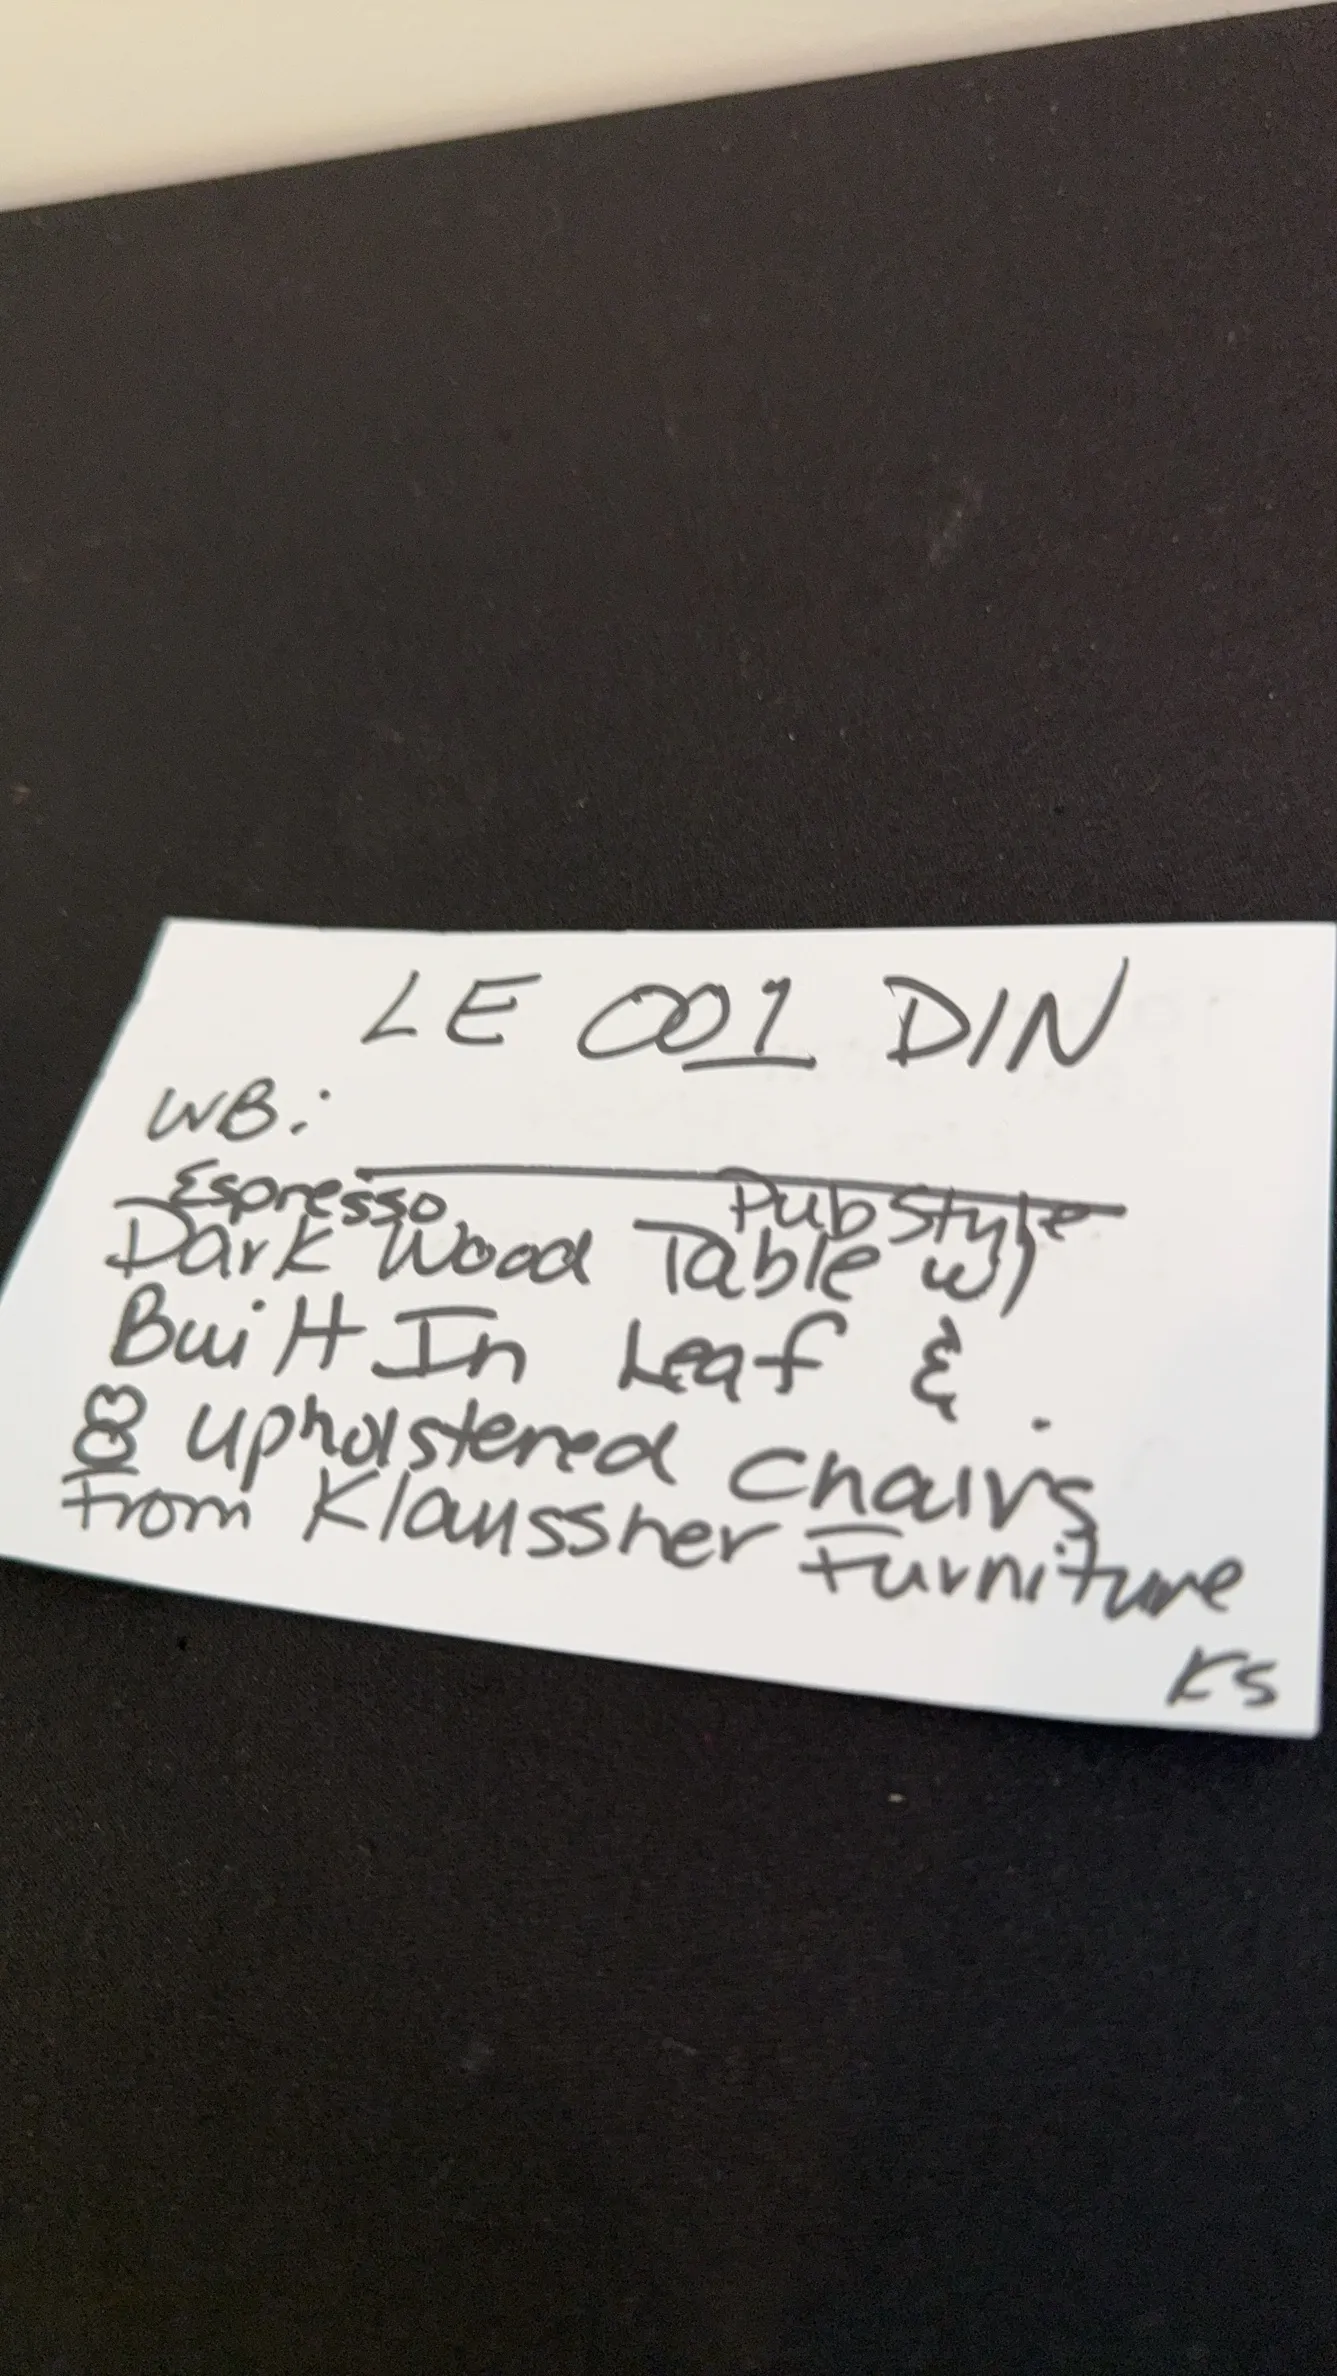 LE 001 DIN
WB:
Espresso Pub Style
Dark Wood Table w/
Built In Leaf &
8 upholstered Chairs
From Klaussner Furniture
KS